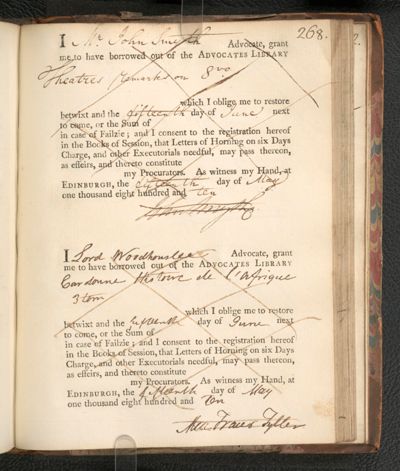 268.
I Mr. John Smyth Advocate, grant
me to have borrowed out of the ADVOCATES LIBRARY
Theatres Remarks on 8vo
which I oblige me to restore
betwixt and the fifteenth day of June next
to come, or the Sum of
in case of Failzie; and I consent to the registration hereof
in the Books of Session, that Letters of Horning on six Days
Charge, and other Executorials needful, may pass thereon,
as effeirs, and thereto constitute
my Procurators. As witness my Hand, at
EDINBURGH, the fifteenth day of May
one thousand eight hundred and ten
John Smyth
I Lord Woodhouselee Advocate, grant
me to have borrowed out of the ADVOCATES LIBRARY
Cardonne Histoire de l'Afrique
3 tom
which I oblige me to restore
betwixt and the fifteenth day of June next
to come, or the Sum of
in case of Failzie; and I consent to the registration hereof
in the Books of Session, that Letters of Horning on six Days
Charge, and other Executorials needful, may pass thereon,
as effeirs, and thereto constitute
my Procurators. As witness my Hand, at
EDINBURGH, the fifteenth day of May
one thousand eight hundred and ten
Fraser Tytler